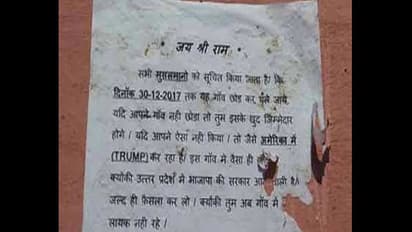 • जय श्री राम •
सभी मुसलमानो को सूचित किया जाता है। कि
दिनाँक 30-12-2017 तक यह गाँव छोड़ कर चले जाये
यदि आपने गाँव नही छोड़ा तो तुम इसके खुद जिम्मेदार
होगे। यदि आपने ऐसा नही किया। तो जैसे अमेरिका में
(TRUMP) कर रहा है। इस गाँव मे वैसा ही
क्योंकी उत्तर प्रदेश में भाजापा की सरकार
जल्द ही फ़ैसला कर लो। क्योंकी तुम अब गाँव में
लायक नही रहे।